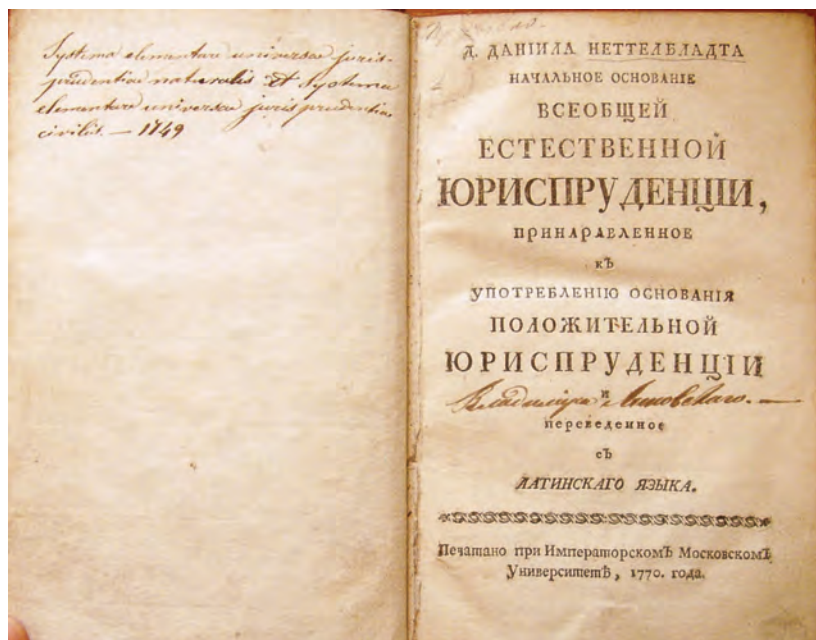 Systema elementare universae juris-
prudentiae naturalis et Systema
elementare universae jurisprudentiae
civilis. — 1749
Д. ДАНІИЛА НЕТТЕЛБЛАДТА
НАЧАЛЬНОЕ ОСНОВАНІЕ
ВСЕОБЩЕЙ
ЕСТЕСТВЕННОЙ
ЮРИСПРУДЕНЦІИ,
ПРИНАРАВЛЕННОЕ
КЪ
УПОТРЕБЛЕНІЮ ОСНОВАНІЯ
ПОЛОЖИТЕЛЬНОЙ
ЮРИСПРУДЕНЦІИ
и
Владимира
переведенное
съ
ЛАТИНСКАГО ЯЗЫКА.
Печатано при Императорскомъ Московскомъ
Университетѣ, 1770. года.